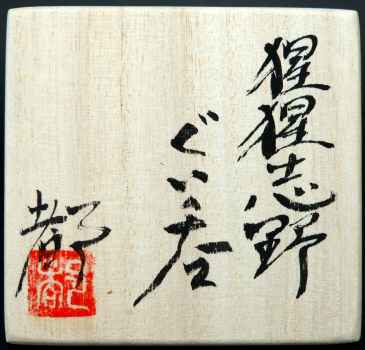 猩猩志野
ぐい呑
都